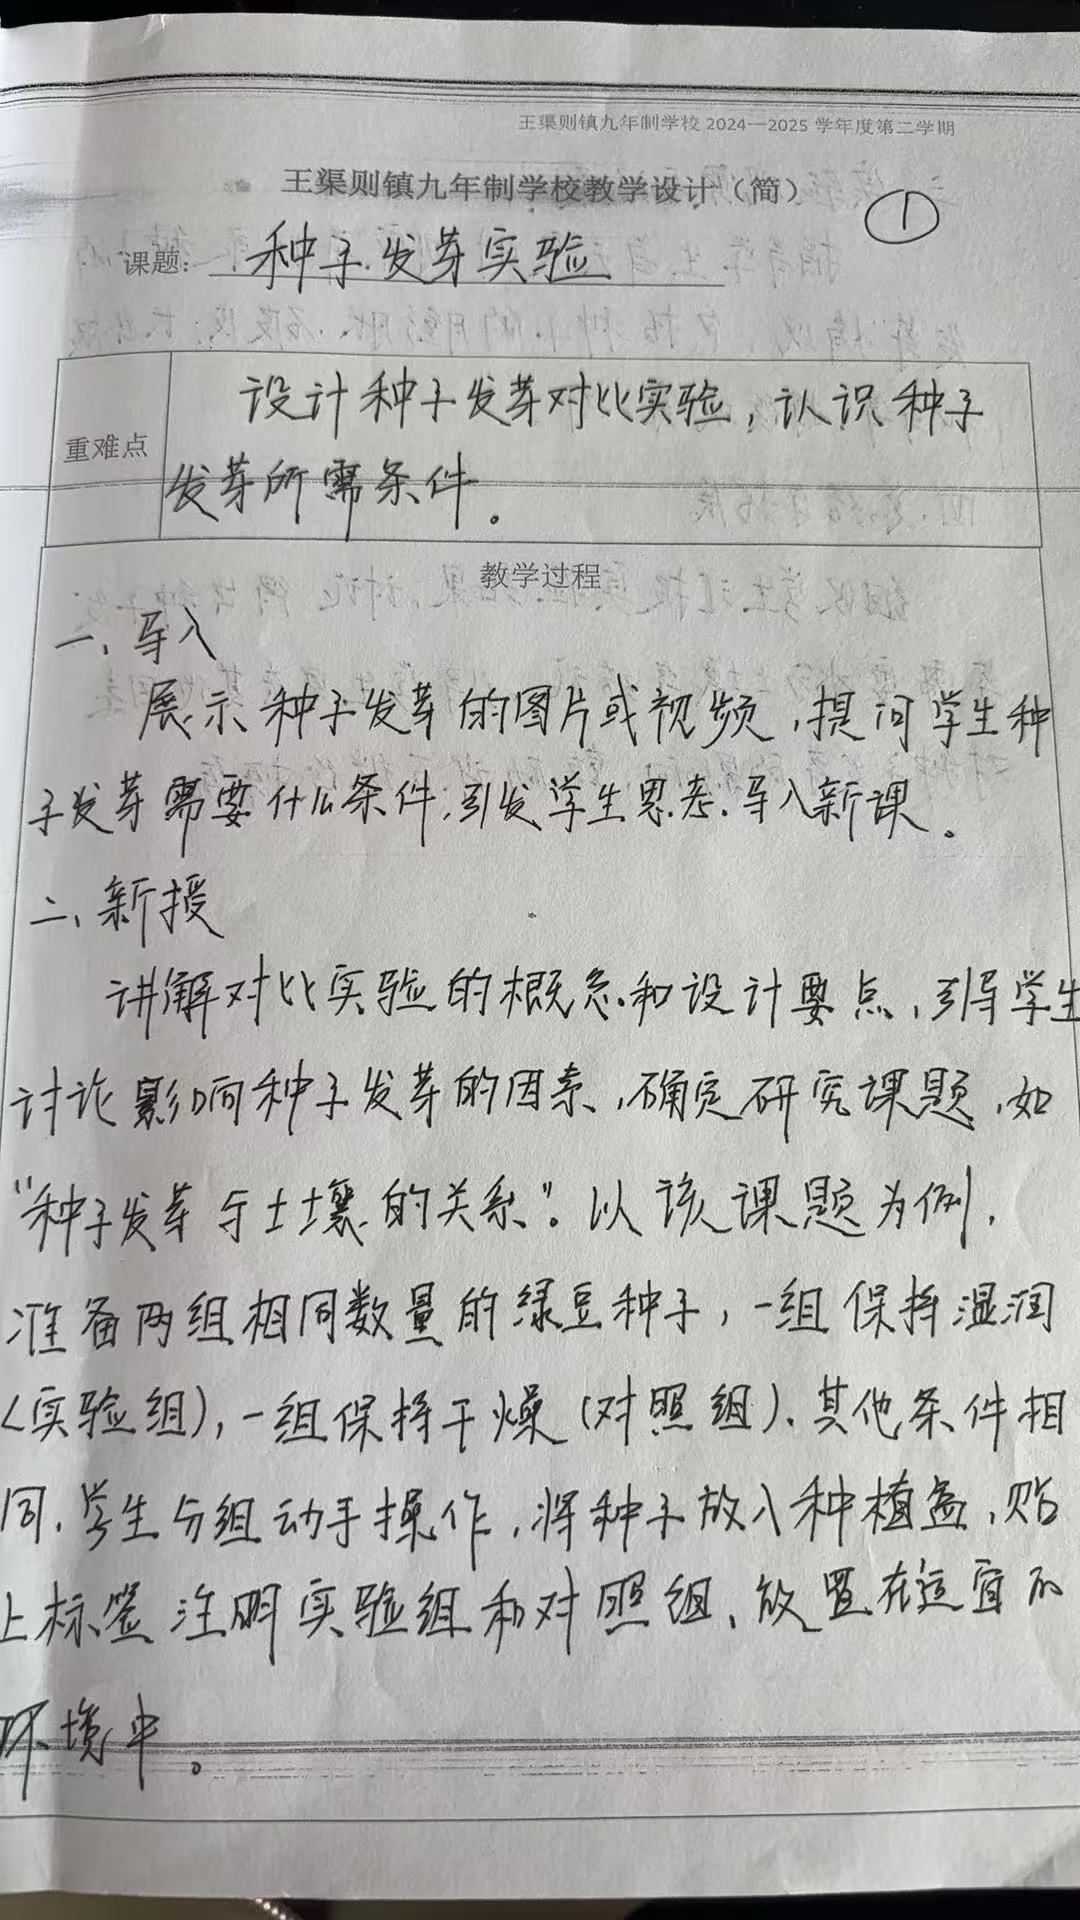 王渠则镇九年制学校 2024—2025 学年度第二学期
王渠则镇九年制学校教学设计（简）
①
课题：种子发芽实验
重难点
设计种子发芽对比实验，认识种子
发芽所需条件。
教学过程
一、导入
展示种子发芽的图片或视频，提问学生种
子发芽需要什么条件，引发学生思考，导入新课。
二、新授
讲解对比实验的概念和设计要点，引导学生
讨论影响种子发芽的因素，确定研究课题，如
“种子发芽与土壤的关系”。以该课题为例，
准备两组相同数量的绿豆种子，一组保持湿润
（实验组），一组保持干燥（对照组）、其他条件相
同，学生分组动手操作，将种子放入种植盆，贴
上标签注明实验组和对照组，放置在适宜的
环境中。